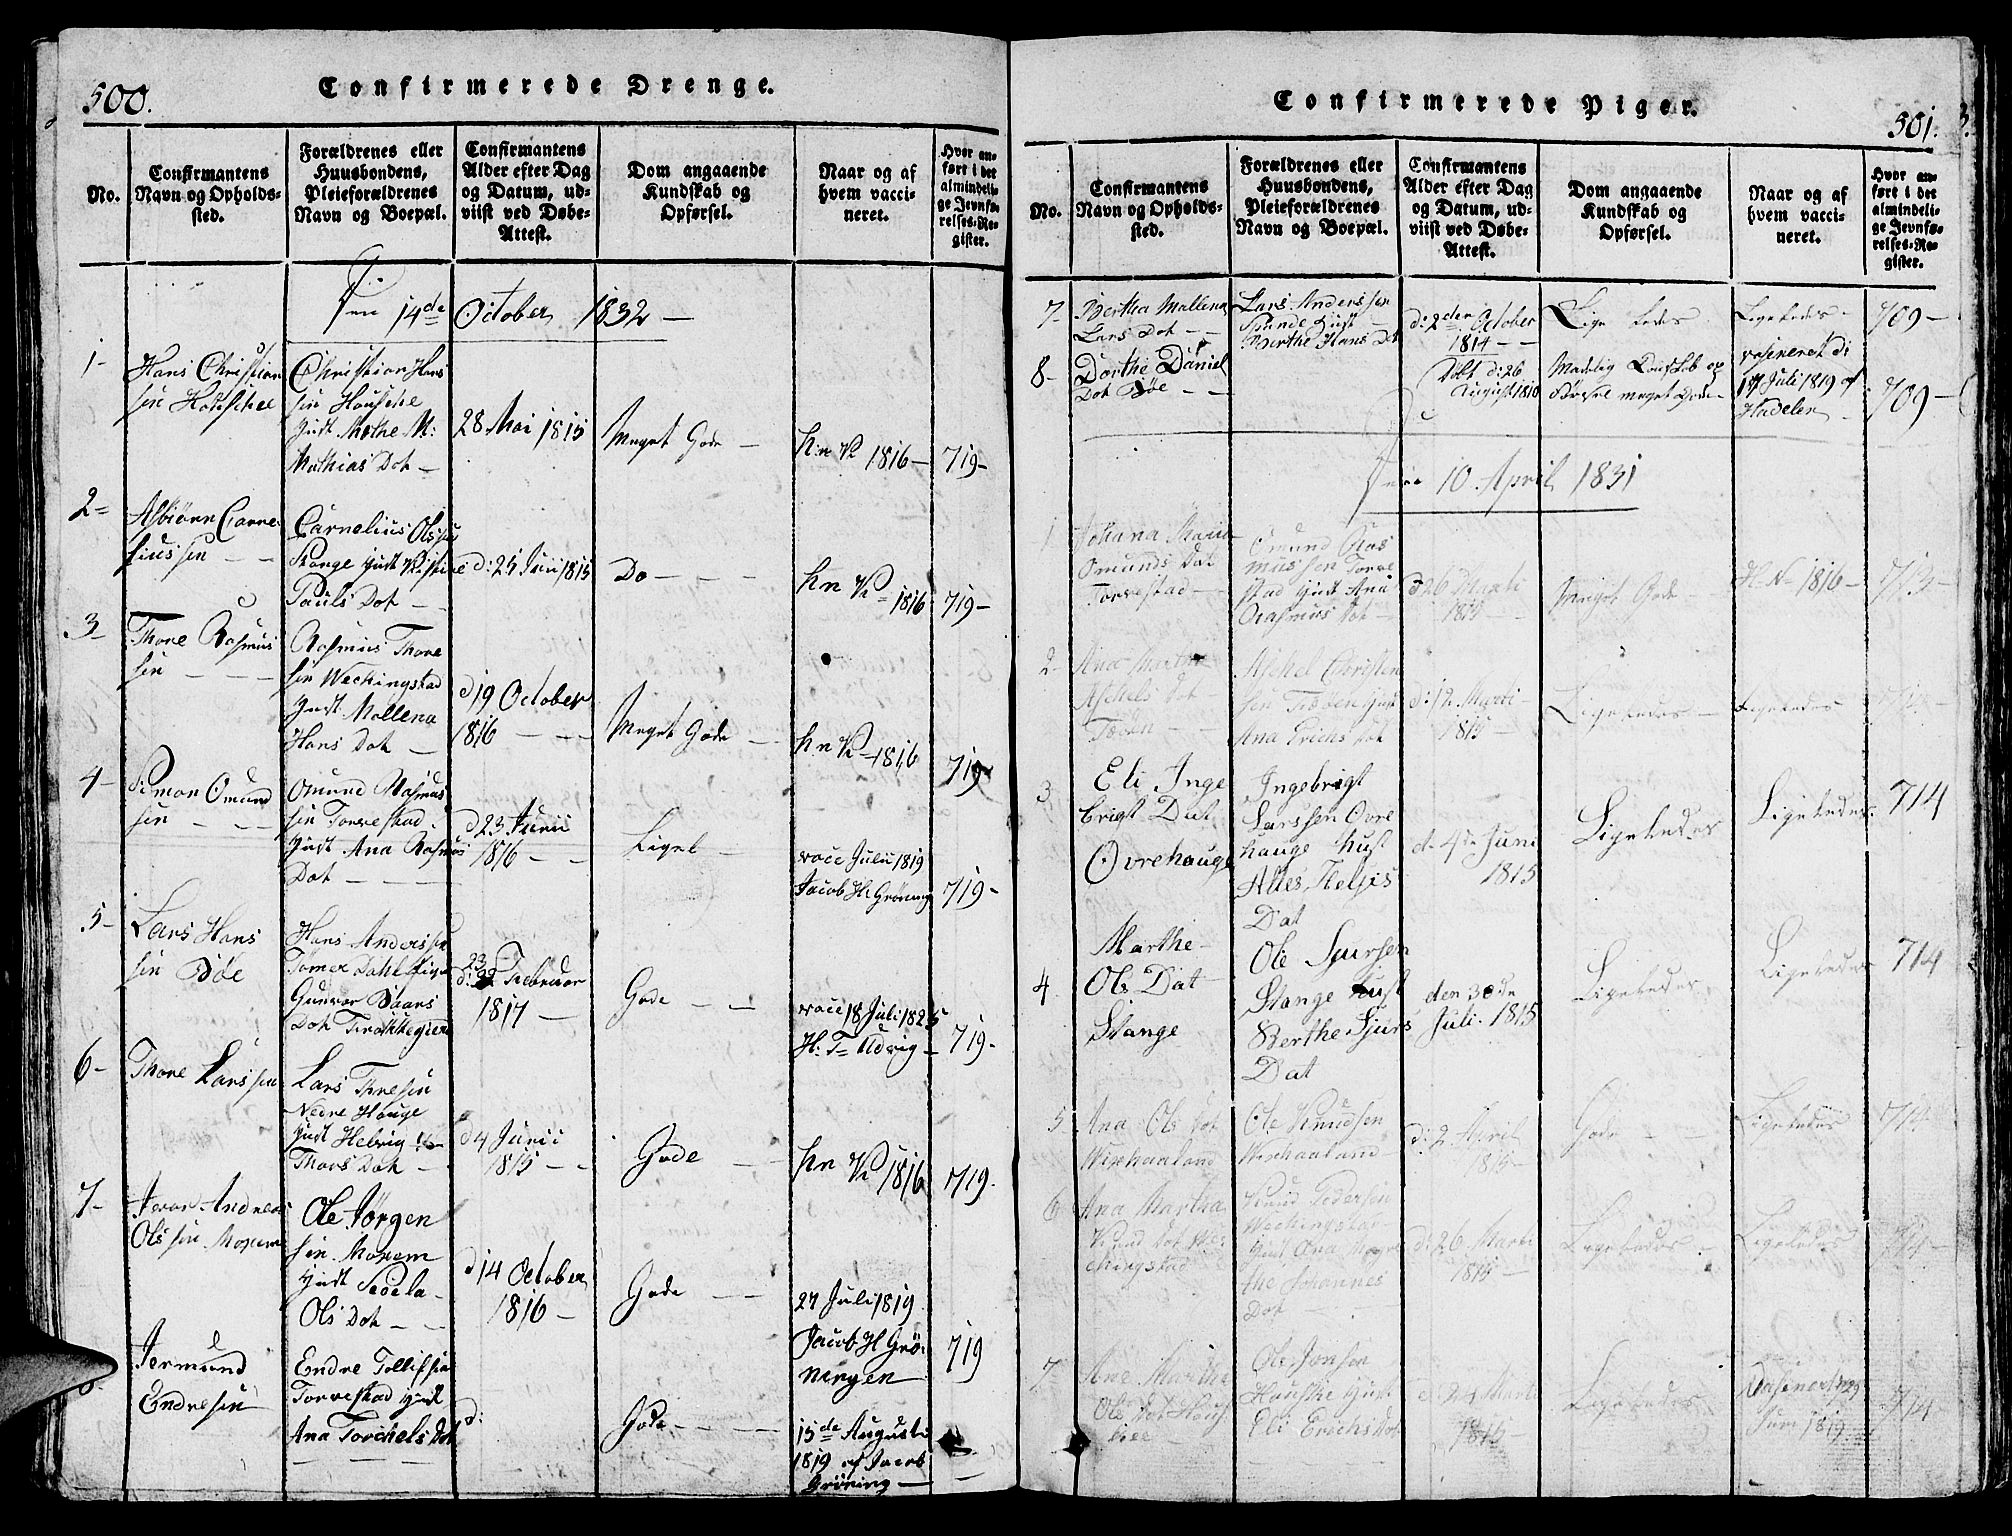 500.
Confirmerede Drenge.
No.
Confirmantens
Navn og Opholds-
sted.
Forældrenes eller
Huusbondens,
Pleieforældrenes
Navn og Boepæl.
Confirmantens
Alder efter Dag
og Datum, ud-
viist ved Døbe-
Attest.
Dom angaaende
Kundskab og
Opførsel.
Naar og af
hvem vacci-
neret.
Hvor an-
ført i det
almindeli-
ge Jevnfø-
relses-Re-
gister.
Den 14de October 1832 —
1-
Hans Christian
sen Houschee
Christian Hans
sen Housche
Hust Mathe M:
Mathias Dot —
28 Mai 1815
Meget Gode —
h:n V 1816 —
719-
2=
Asbiønn Corne
liussen — —
Carnelius Ols:sen
Stange Hust Kistine
Pauls Dot —
d: 25 Junii 1815
Do — — —
hn V= 1816
719-
3-
Thore Rasmus
sen — — —
Rasmus Thore
sen Weckingstad
Hust Mallena
Hans Dot —
d 19 October
1816 — — —
Meget Gode —
hn V — 1816
719
4-
Simon Omund
sen — — —
Omund Rasmus
sen Torvestad
Hust Ana Rasmus
Dot — — —
d 23 Junii
1816 — —
Ligel —
vacc Julii 1819
Jacob H Grøning
719-
5-
Lars Hans
sen Bøe
Hans Anderssen
Tømer Dahl Pige
Gunvor Baars
Dot
23
d: 22 Februar
1817 —
Gode — —
vacc 18 Juli 1825
H: T= Udvig —
719-
6-
Thore Larssen
Lars Thresen
Nedre Houge
Hust Helvig
Thors Dot —
d 4 Junii
1815 — —
Gode — —
hn V 1816
719.
7-
Ivar Andreas
Olssen Moxem
Ole Jørgen
sen Moxem
Hust Sedela
Ols Dot — —
d 14 October
1816 —
Gode — —
27 Juli 1819
Jacob H Grø-
ningen
719
8.
Jermund
Endresen
Endre Tollifsen
Torvestad Hust
Ana Torchels Dot
— — — —
d:
Gode — — —
15de Augusti
1819 af Jacob
Grøning —
—
Confirmerede Piger.
501.
No.
Confirmantens
Navn og Opholds-
sted.
Forældrenes eller
Huusbondens,
Pleieforældrenes
Navn og Boepæl.
Confirmantens
Alder efter Dag
og Datum, ud-
viist ved Døbe-
Attest.
Dom angaaende
Kundskab og
Opførsel.
Naar og af
hvem vacci-
neret.
Hvor an-
ført i det
almindeli-
ge Jevnfø-
relses-Re-
gister.
7-
Bertha Mallena
Lars Dot — —
Lars Anderssen
Hust
Berthe Hans Dot
d: 2den October
1814 —
Lige ledes —
Ligeledes —
709-
8-
Dorthe Daniel
Dot Bøe —
Døbt d: 26
August 1810
Madelig Kundskab op
førsel meget Gode —
vasineret di
17 Juli 1819 af
Hadelen —
709-
Den 10 April 1831
1
Johana Maria
Omunds Dat
Torvestad —
Omund Ras
mussen Torve
stad Hust Ana
Rasmus dot —
d: 26 Marti
1815 — —
Meget Gode —
H-N- 1816 —
713-
2-
Ana Martha
Aschels dot
Tøvøen —
Aschel Christen
sen Hust
Ana Erichs dot
d: 12 Marti
1815 —
Ligeledes —
Ligeledes
714-
3
Eli Inge
brigt Dat
Ovrehauge
Ingebrigt
Larssen Ovre
hauge Hust
Altes Helgis
Dat
de 4de Juni
1815
Ligeledes
Ligeledes.
714
4
Marthe-
Ols Dat-
Stange
Ole Sjursen
Stange Hust
Berthe Sjurs
Dat
den 30de
Juli. 1815
Ligeledes
Ligeledes
714
5
Ana Ols dot
Wixhaaland
Ole Knudsen
Wixhaaland
d: 2 April
1815 —
Gode — —
Ligeledes
714-
6
Ana Martha
Knud dot We
chingstad
Knud Pedersen
Weckingstad
Hust Ana Mar
the Johannes
Dot —
d: 26 Marti
1815 —
Ligeledes —
Ligeledes
714-
7
Ane Marthe
Ole dot Hous
kee —
Ole Jansen
Houske Hust
Eli Erichs dot
d 24 Marti
1815
Ligeledes
Vasineret d: 29
Juni 1819
714-